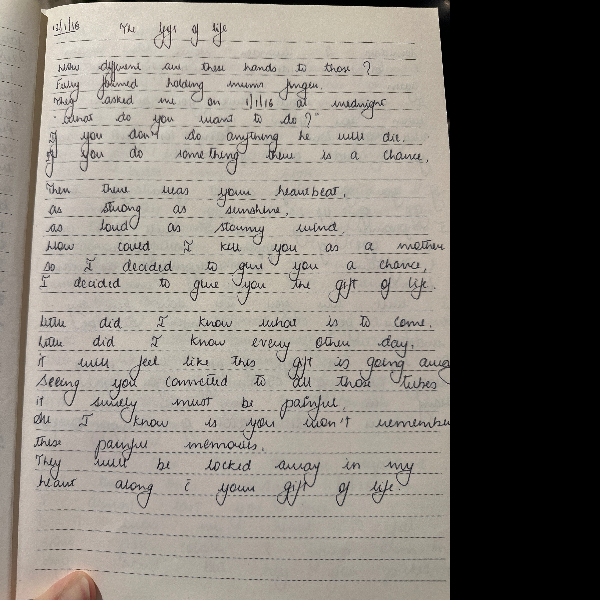 12/1/16 The joys of life
How different are these hands to those?
Fully formed holding mums finger.
They asked me on 1/1/16 at midnight
"What do you want to do?"
If you don't do anything he will die.
If you do something there is a chance.
Then there was your heartbeat,
as strong as sunshine,
as loud as stormy wind.
How could I kill you as a mother
so I decided to give you a chance,
I decided to give you the gift of life.
Little did I know what is to come.
Little did I know every other day,
it will feel like this gift is going away
Seeing you connected to all those tubes
it surely must be painful.
All I know is you won't remember
these painful memories.
They will be locked away in my
heart along c̄ your gift of life.